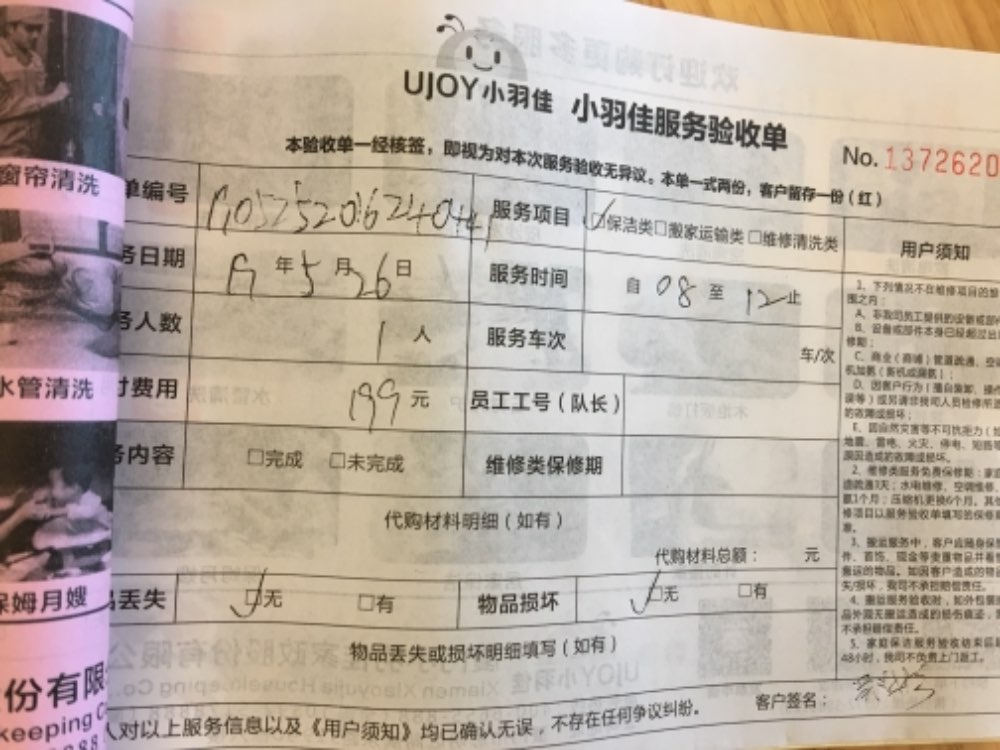 UJOY小羽佳 小羽佳服务验收单
本验收单一经核签，即视为对本次服务验收无异议。本单一式两份，客户留存一份（红）
No. 1372620
单编号 服务项目 保洁类 □搬家运输类 □维修清洗类
务日期 年 5 月 26 日 服务时间 自 08 至 12 止
务人数 1 人 服务车次 车/次
付费用 199 元 员工工号（队长）
务内容 □完成 □未完成 维修类保修期
代购材料明细（如有）
代购材料总额： 元
品丢失 ☑无 □有 物品损坏 ☑无 □有
物品丢失或损坏明细填写（如有）
人对以上服务信息以及《用户须知》均已确认无误，不存在任何争议纠纷。 客户签名：
用户须知
1、下列情况不在维修项目的
围之内：
A、非我司员工提供的设备或部
B、设备或部件本身已经超过
修期；
C、商业（商铺）管道疏通、空
机加氨（新机或漏氨）；
D、因客户行为（擅自
的故障或损坏；
E、因自然灾害等不可抗拒力（如
地震、雷电、火灾、停电、短路
原因造成的故障或损坏。
2、维修类服务免费保修期：家
道疏通7天；水电维修、空调维修、
氨1个月；压缩机更换6个月。其
修项目以服务验收单填写的保修
准。
3、搬运服务中，客户应随身保
件、首饰、现金等贵重物品并看
搬运的物品。如因客户造成的物品
失/损坏，我司不承担赔偿责任。
4、搬运服务验收时，如外包装
品外观无搬运造成的损伤痕迹，
不承担赔偿责任。
5、家庭保洁服务验收结束后
48小时，我司不负责上门返工。
窗帘清洗
水管清洗
保姆月嫂
份有限
keeping C
8888